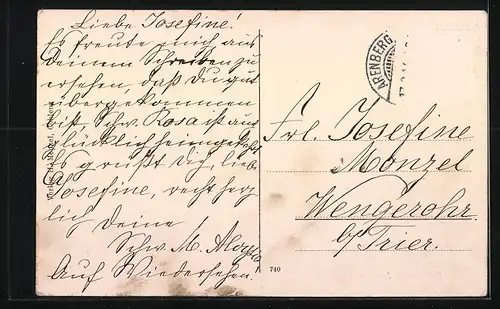 Liebe Josefine!
Es freute mich aus
Deinem Schreiben zu
ersehen, daß Du gut
übergekommen
bist. Schw. Rosa ist auch
glücklich heimgekehrt
Es grüßt Dich, liebe
Josefine, recht herz
lich
Deine
Schw. M.
Auf Wiedersehen!
Frl. Josefine
Monzel
Wengerohr
b/Trier.
ARENBERG
740